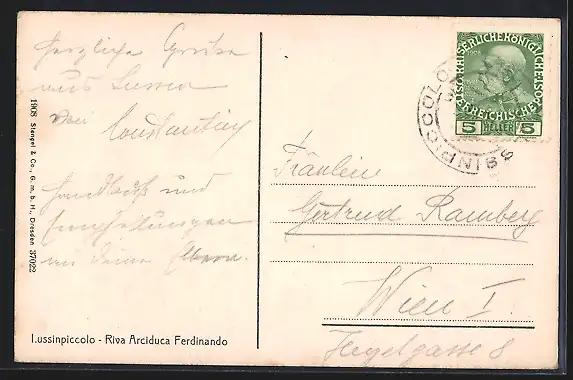 herzliche Grüße
aus Lussin
Constantin
Handkuß und
Empfehlungen
an Deine Eltern.
1908 Stengel & Co., G. m. b. H., Dresden 37022
Lussinpiccolo - Riva Arciduca Ferdinando
KAISERLICHE KÖNIGLICHE ÖSTERREICHISCHE
5 HELLER 5
LUSSINPICCOLO
Fräulein
Gertrud Ramberg
Wien I.
Hegelgasse 8